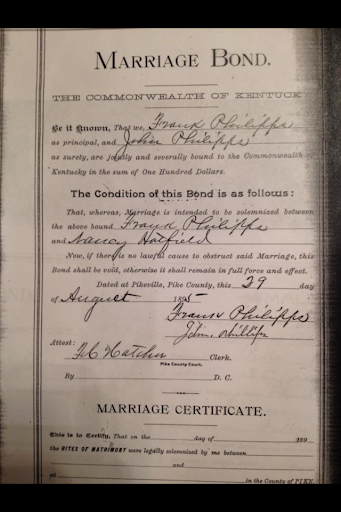 MARRIAGE BOND.
THE COMMONWEALTH OF KENTUCK
Be it Known, That we, Frank Philipps
as principal, and John Philipps
as surety, are jointly and severally bound to the Commonwealth of
Kentucky in the sum of One Hundred Dollars.
The Condition of this Bond is as follows:
That, whereas, Marriage is intended to be solemnized between
the above bound Frank Philipps
and Nancy Hatfield
Now, if there is no lawful cause to obstruct said Marriage, this
Bond shall be void, otherwise it shall remain in full force and effect.
Dated at Pikeville, Pike County, this 29 day
of August 1895
Frank Philipps
John Phillips
Attest:
Hatcher Clerk.
Pike County Court.
By D. C.
MARRIAGE CERTIFICATE.
This is to Certify, That on the day of 189
the RITES OF MATRIMONY were legally solemnized by me between
and
at in the County of PIKE,